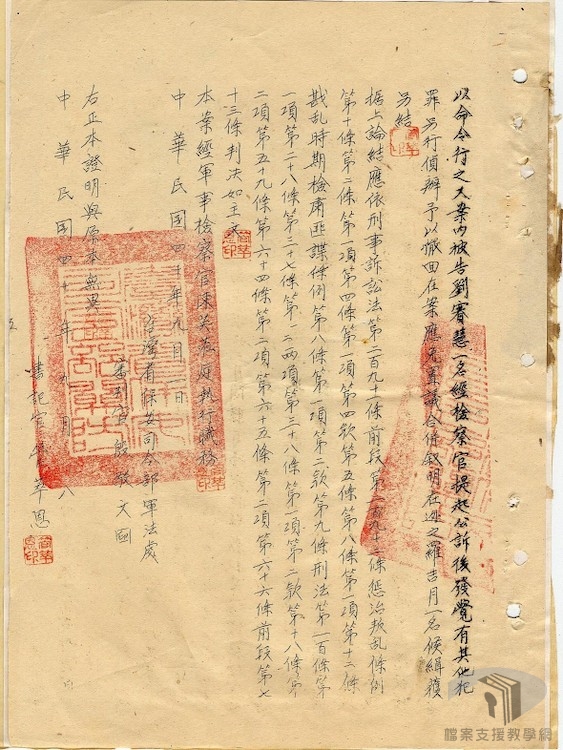 以命令行之又案內被告劉寶慧一名經檢察官提起公訴後發覺有其他犯
罪另行偵辦予以撤回在案應免置議合併敘明在逃之羅吉月一名候緝獲
另結
據上論結應依刑事訴訟法第二百九十一條前段第二百九十二條懲治叛乱條例
第十條第二條第一項第四條第一項第四款第五條第八條第一項第十二條
戡乱時期檢肅匪諜條例第八條第一項第二款第九條刑法第一百條第
一項第二十八條第三十七條第一二兩項第三十八條第一項第二款第十八條第
二項第五十九條第六十四條第二項第六十五條第二項第六十六條前段第七
十三條判決如主文
本案經軍事檢察官陳英蒞庭執行職務
中華民國四十年九月 日
台灣省保安司令部軍法處
審判官殷敬文
右正本證明與原本無異
中華民國四十年九月 八
書記官 萃恩
檔案支援教學網